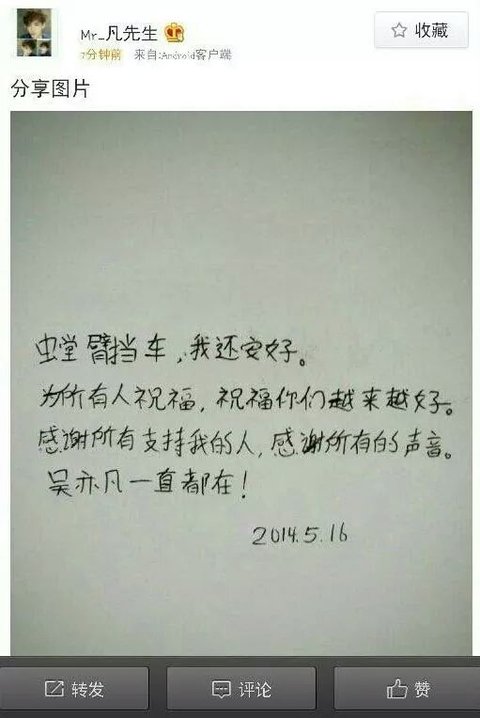 Mr_凡先生
7分钟前 来自:Android客户端
收藏
分享图片
螳臂挡车,我还安好。
为所有人祝福,祝福你们越来越好。
感谢所有支持我的人,感谢所有的声音。
吴亦凡一直都在!
2014.5.16
转发
评论
赞